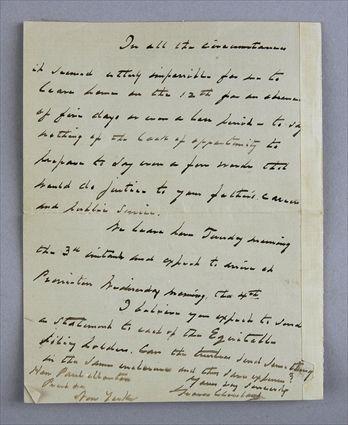 In all the circumstances
it seemed utterly impossible for me to
leave home on the 12th for an absence
of five days or even a less period - to say
nothing of the lack of opportunity to
prepare to say even a few words that
would do justice to your father's career
and public service.
We leave here Tuesday morning
the 3rd instant and expect to arrive at
Princeton Wednesday morning, the 4th.
I believe you expect to send
a statement to each of the Equitable
policy holders. Can the trustees send something
in the same enclosure and thus save expense?
Yours very sincerely
Grover Cleveland
Hon Paul Morton
Prest &c
New York